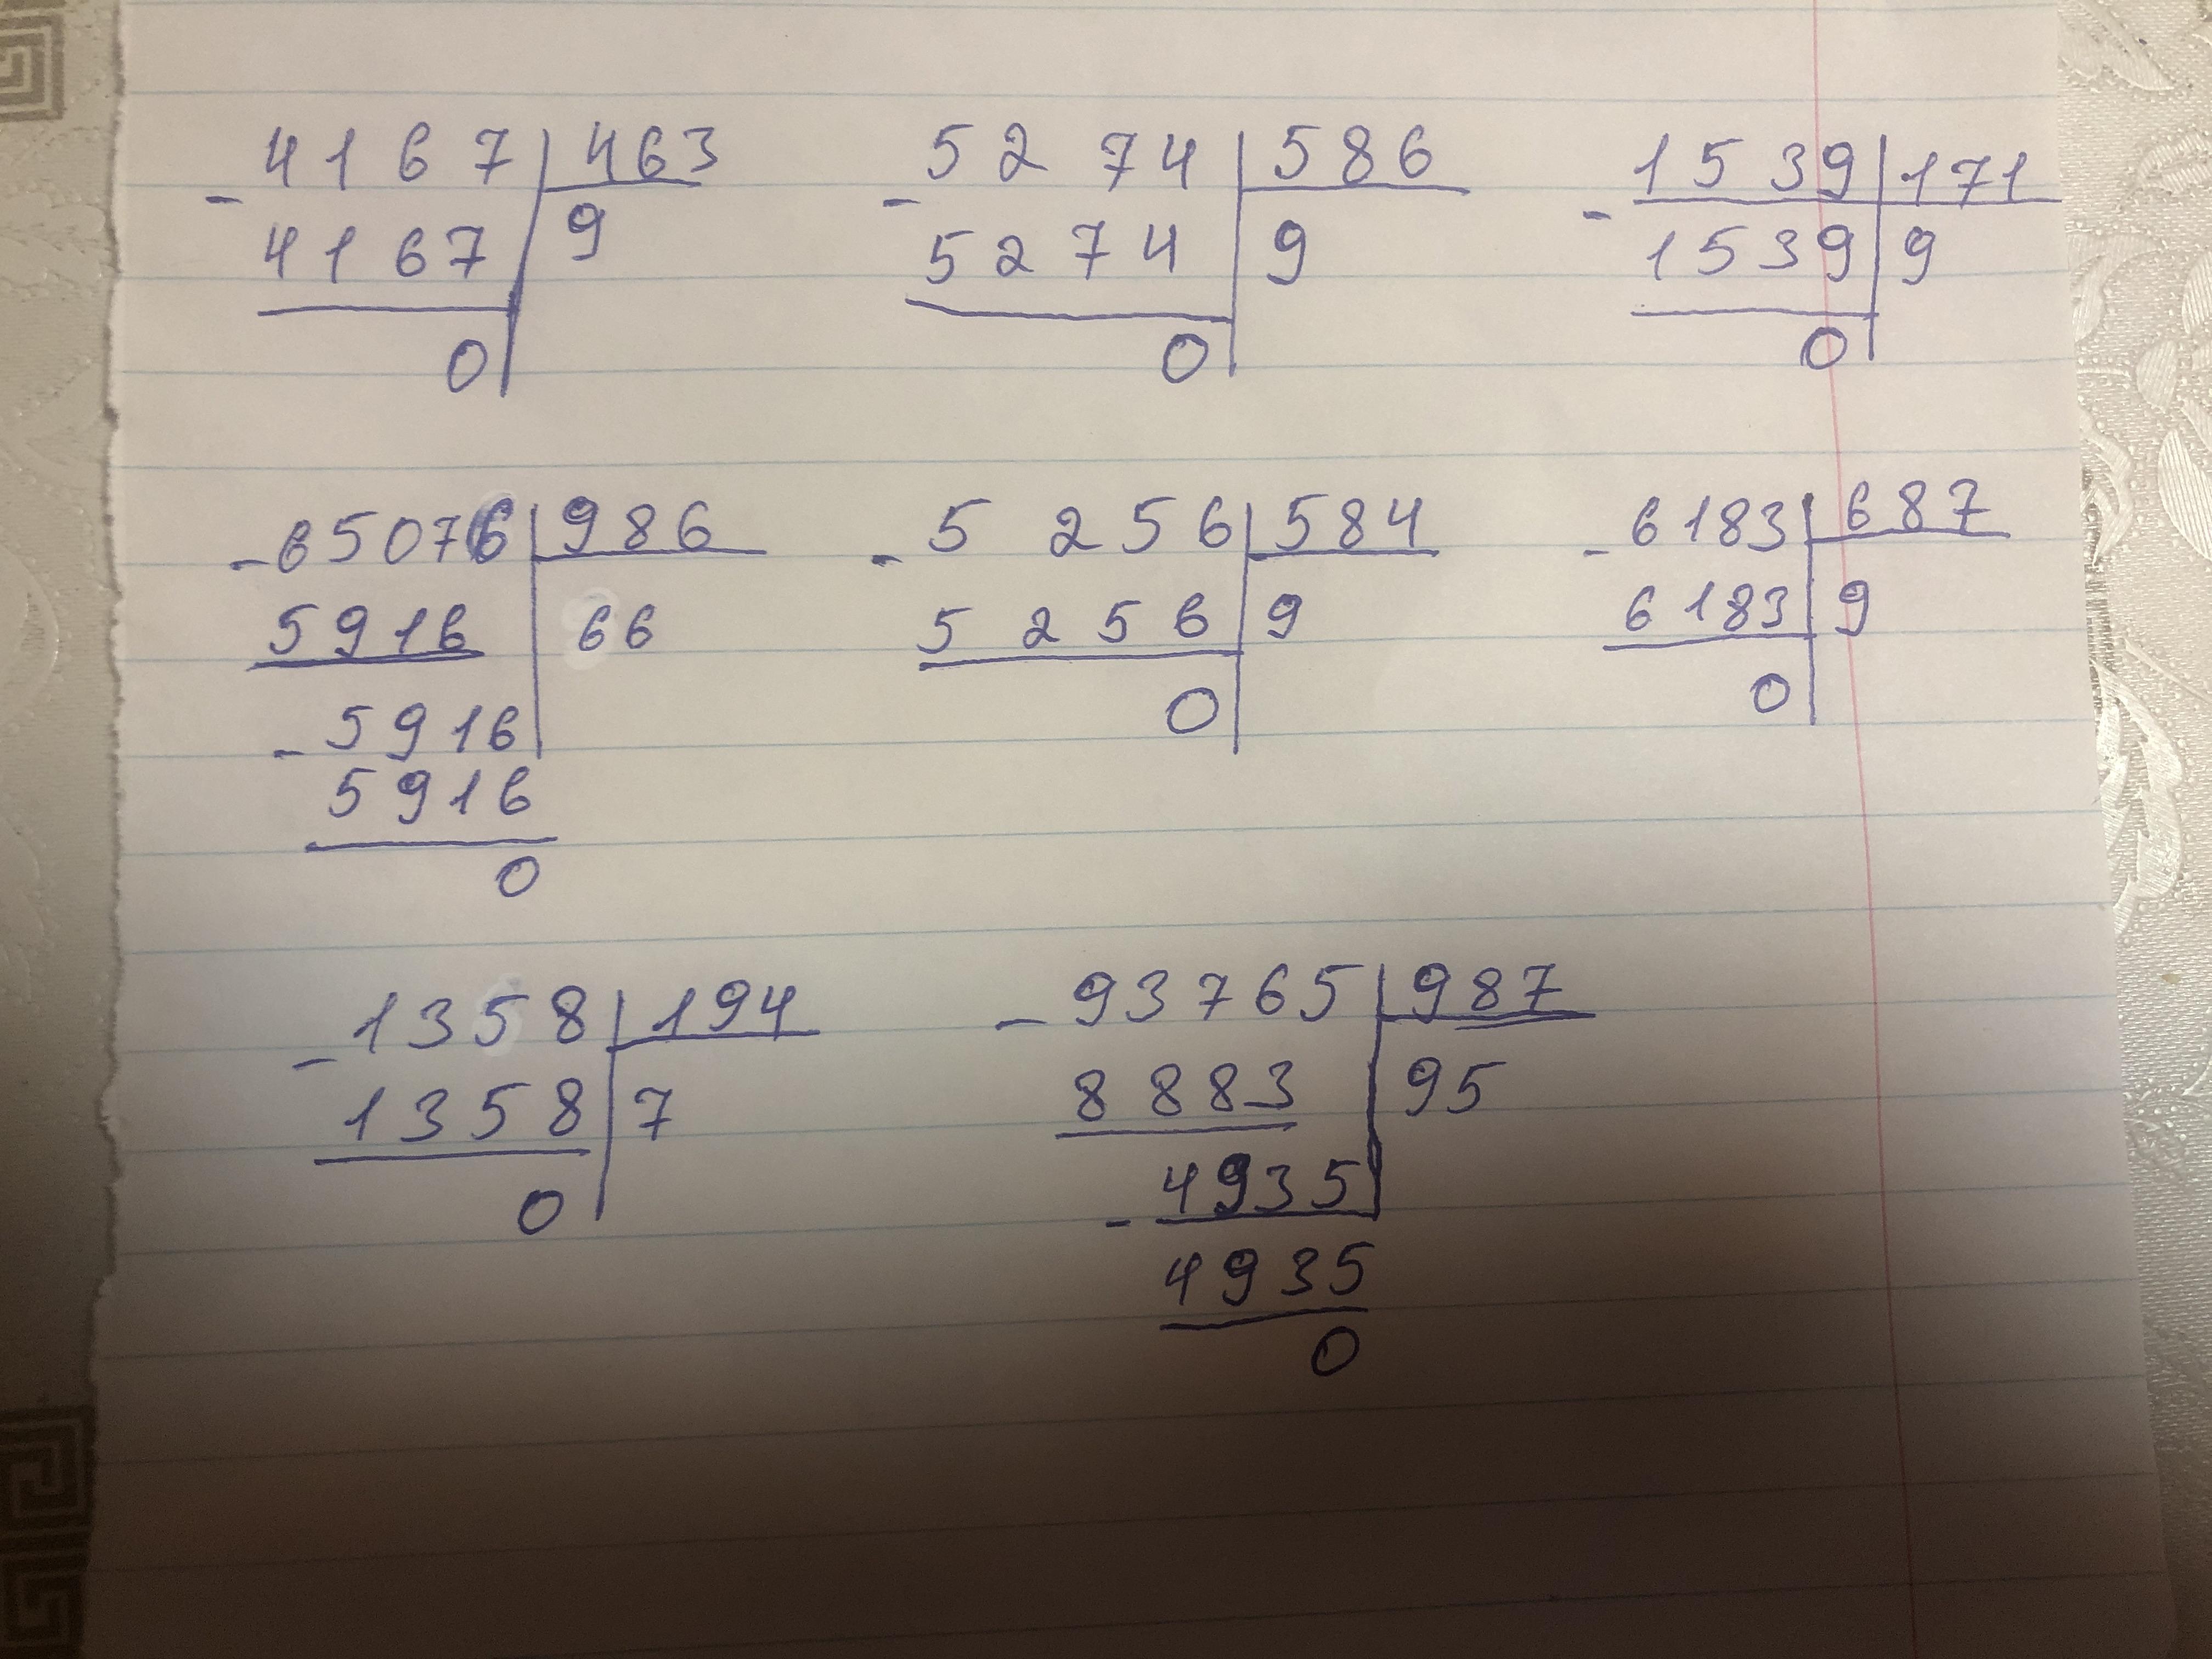 4167 463 5274 586 1539 171
- - -
4167 9 5274 9 1539 9
0 0 0
-65076 986 -5256 584 -6183 687
5916 66 5256 9 6183 9
-5916 0 0
5916
0
-1358 194 -93765 987
1358 7 8883 95
0 -4935
4935
0